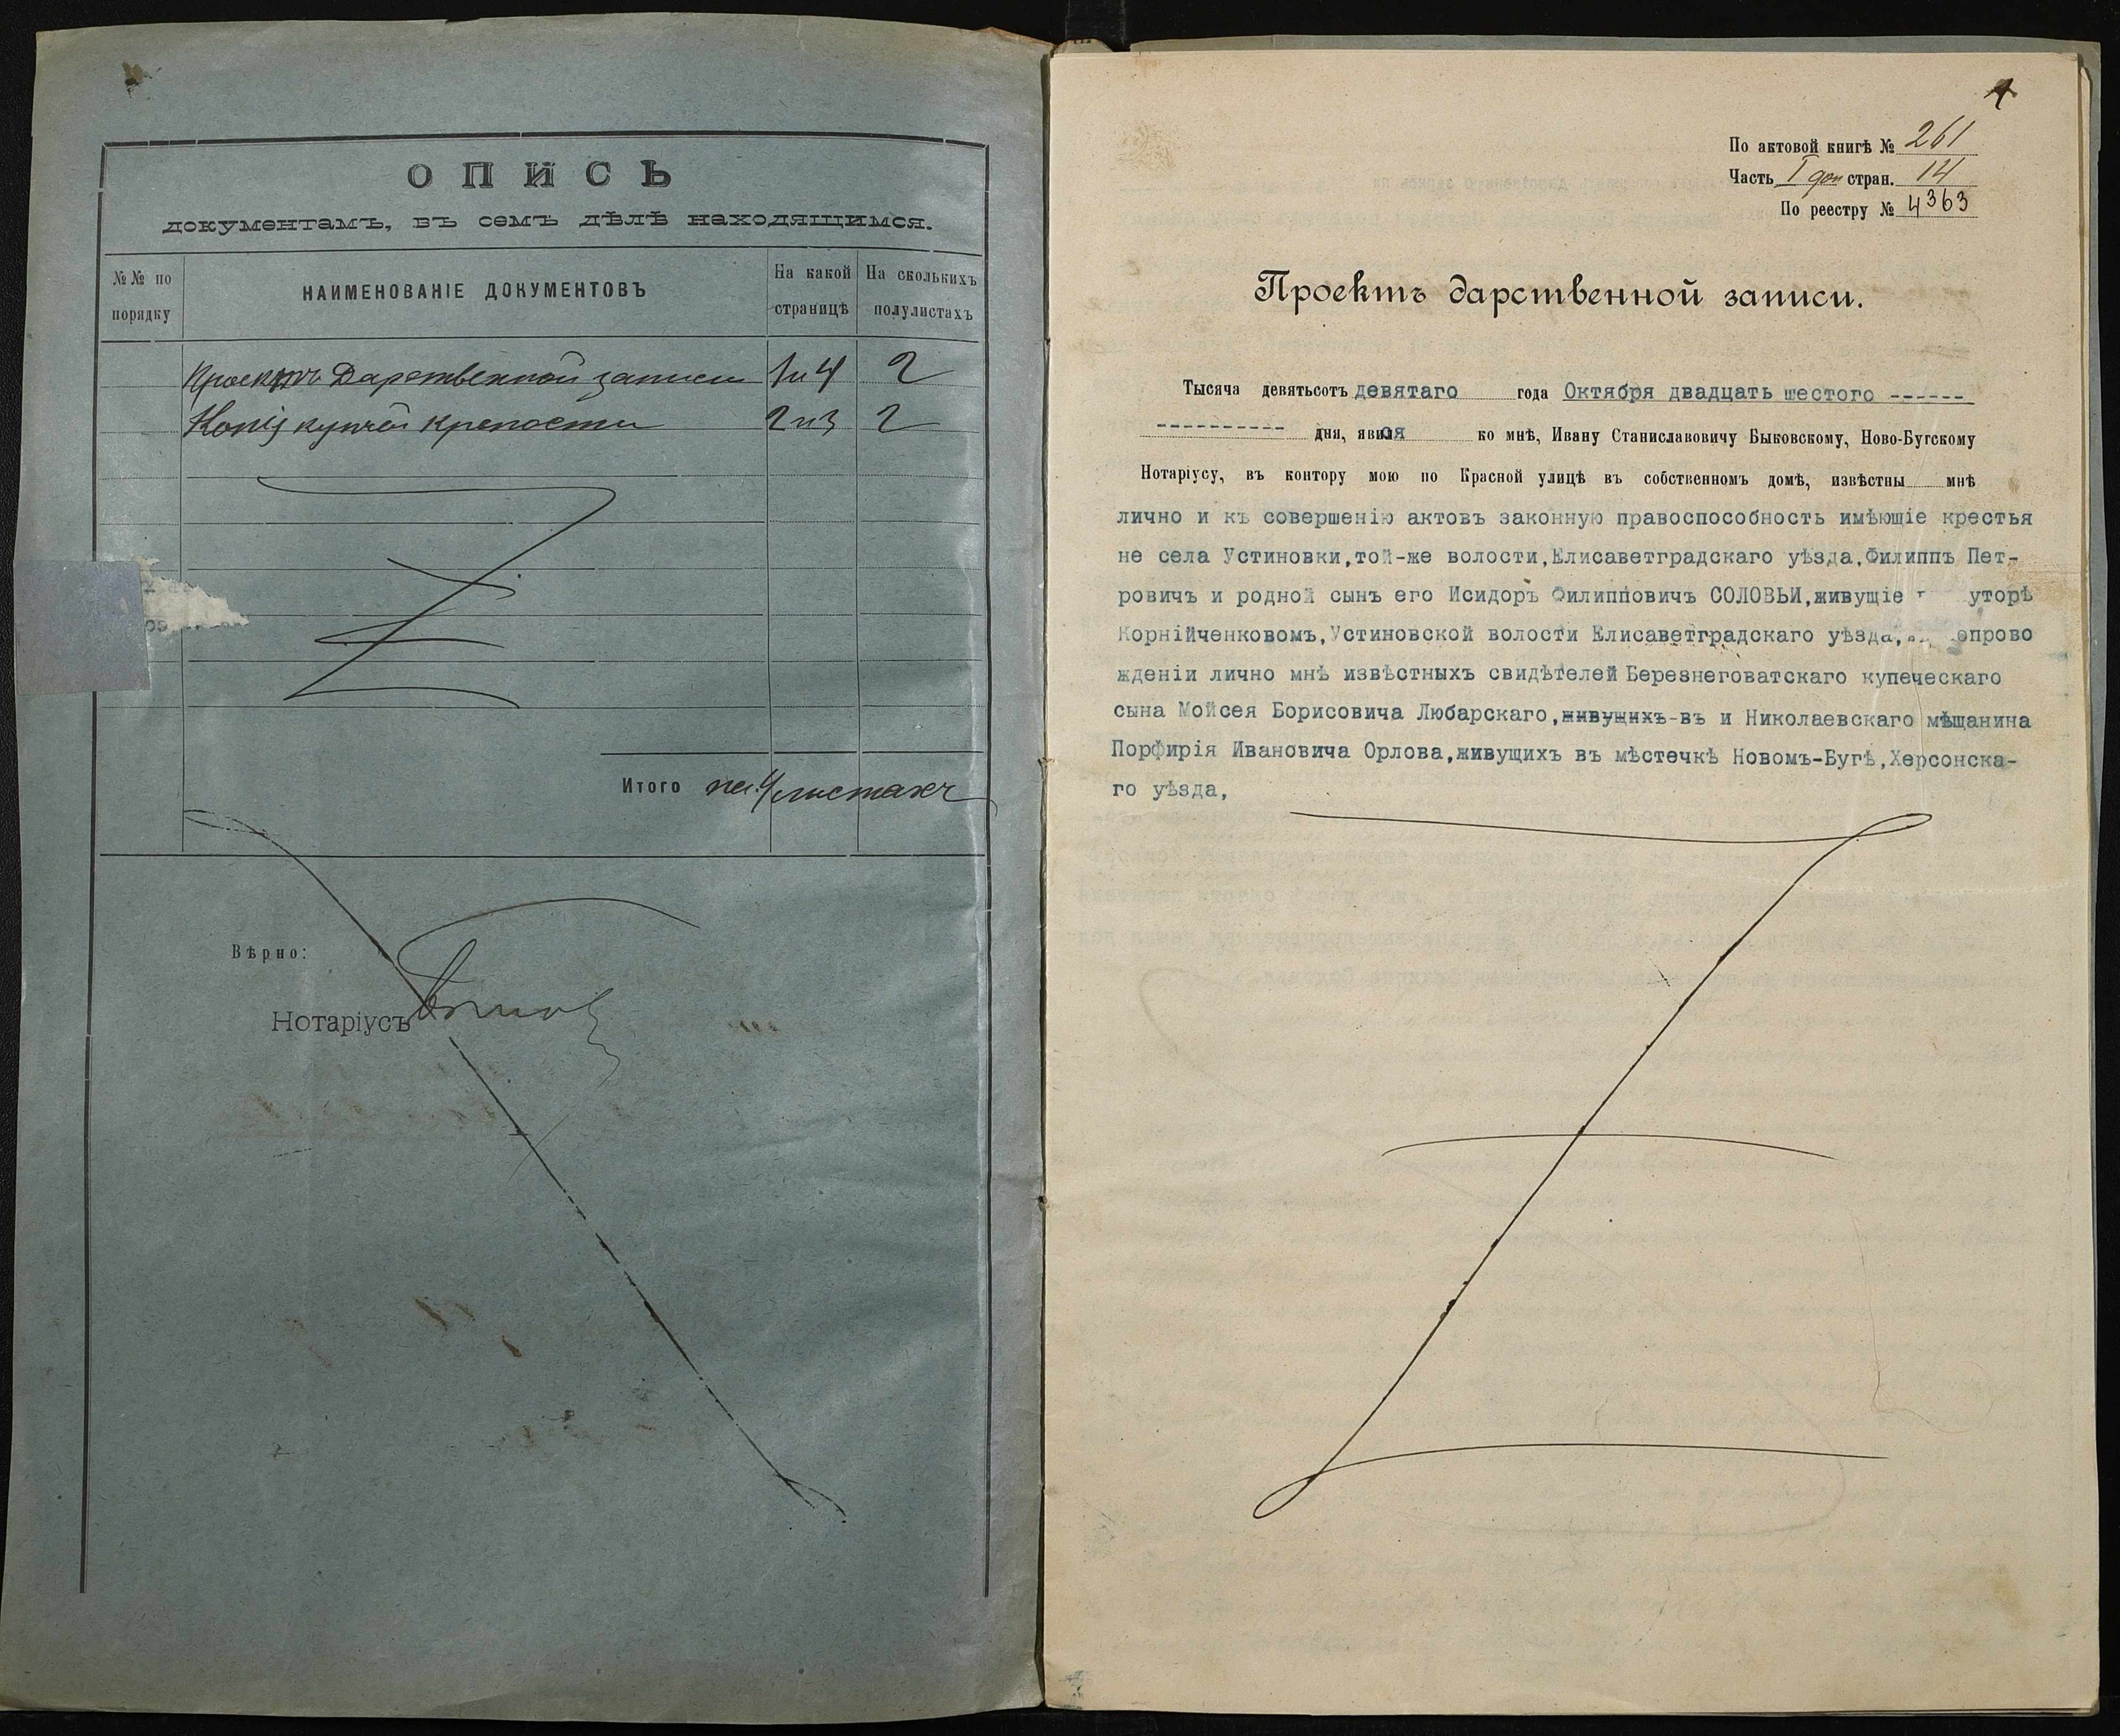 ОПИСЬ
документамъ, въ семъ дѣлѣ находящимся.
№№ по порядку
НАИМЕНОВАНІЕ ДОКУМЕНТОВЪ
На какой страницѣ
На сколькихъ полулистахъ
Проектъ Дарственной записи 1 и 4 2
Копія купчей крепости 2 и 3 2
Итого на 4 листахъ
Вѣрно:
Нотаріусъ
По актовой книгѣ № 261
Часть I доп стран. 14
По реестру № 4363
Проектъ дарственной записи.
Тысяча девятьсотъ девятаго года Октября двадцать шестого ------
---------- дня, явился ко мнѣ, Ивану Станиславовичу Быковскому, Ново-Бугскому
Нотаріусу, въ контору мою по Красной улицѣ въ собственномъ домѣ, извѣстны мнѣ
лично и къ совершенію актовъ законную правоспособность имѣющіе крестья
не села Устиновки,той-же волости,Елисаветградскаго уѣзда,Филиппъ Пет-
ровичъ и родной сынъ его Исидоръ Филипповичъ СОЛОВЬИ,живущіе уторѣ
Корнійченковомъ,Устиновской волости Елисаветградскаго уѣзда, опрово
жденіи лично мнѣ извѣстныхъ свидѣтелей Березнеговатскаго купеческаго
сына Мойсея Борисовича Любарскаго,живущихъ-въ и Николаевскаго мѣщанина
Порфирія Ивановича Орлова,живущихъ въ мѣстечкѣ Новомъ-Бугѣ,Херсонска-
го уѣзда,